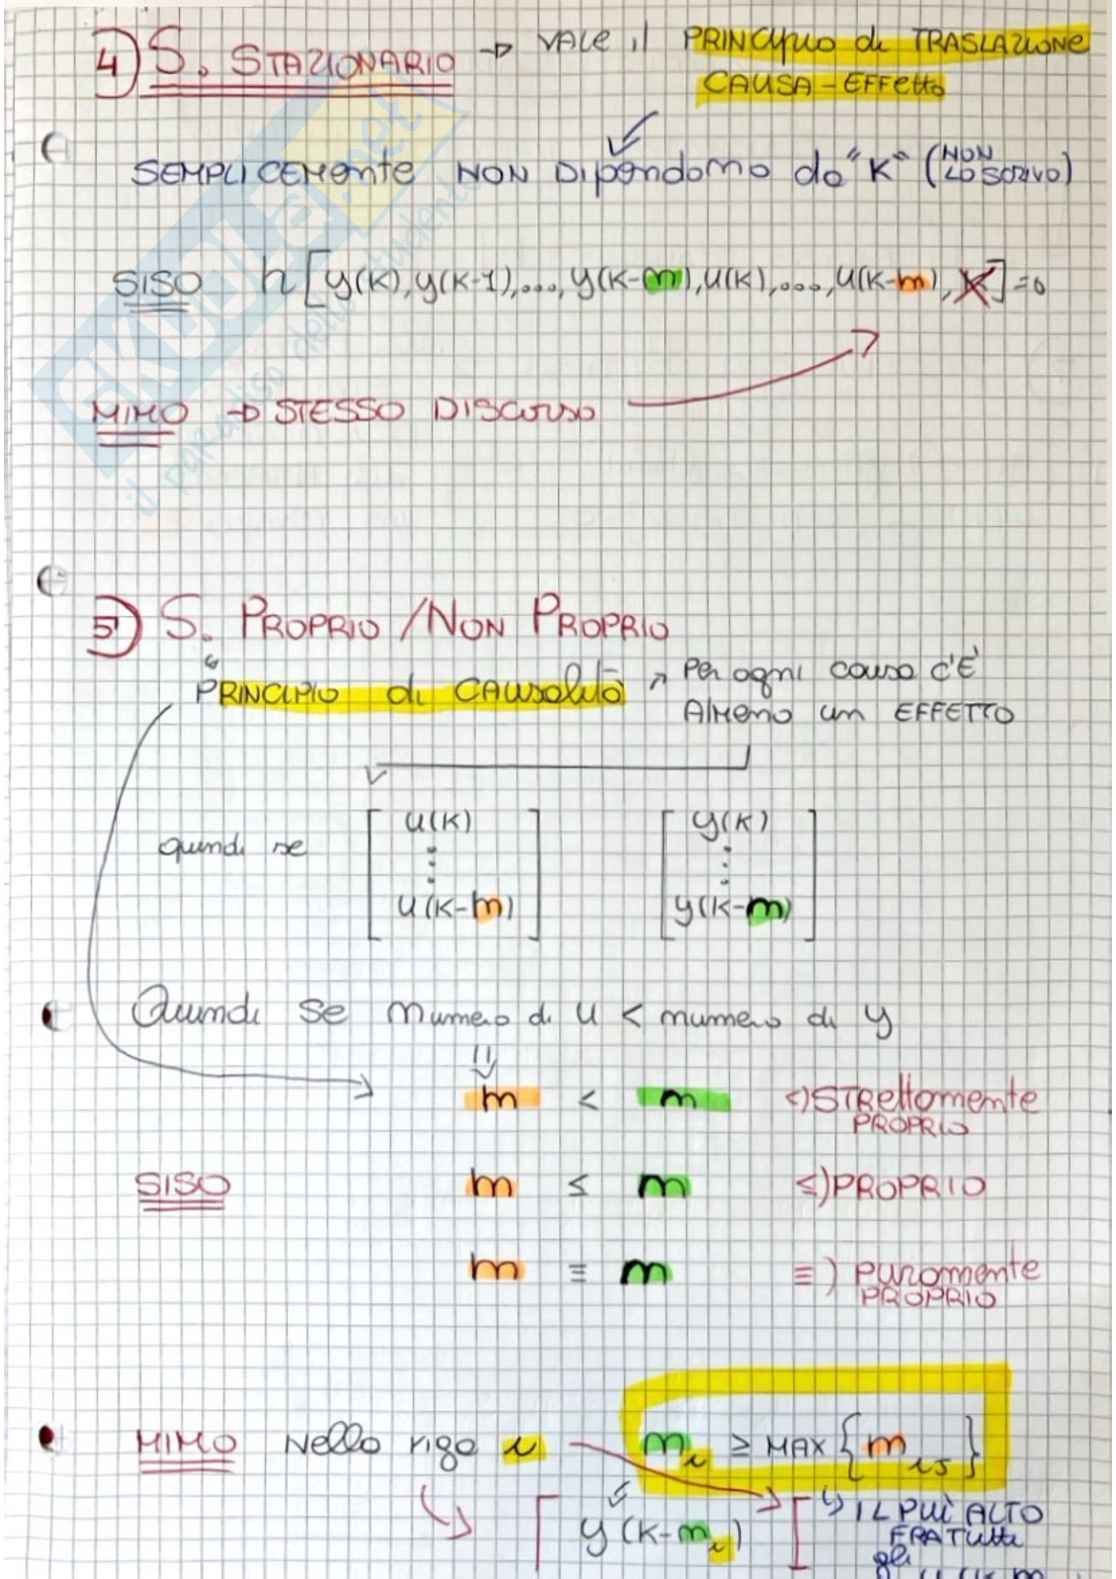 4) S. STAZIONARIO → VALE il PRINCIPIO di TRASLAZIONE
CAUSA-EFFETTO
SEMPLICEMENTE NON DIPENDONO da "K" (NON LO SCRIVO)
SISO h[y(K),y(K-1),...,y(K-n),u(K),...,u(K-m),K]=0
MIMO → STESSO DISCORSO
5) S. PROPRIO/NON PROPRIO
PRINCIPIO di CAUSALITÀ → Per ogni causa c'È
AlMENO un EFFETTO
quindi se
u(K)
⋮
u(K-m)
y(K)
⋮
y(K-n)
Quindi Se numero di u < numero di y
m < n <) STRettamente
PROPRIO
SISO m ≤ n ≤) PROPRIO
m ≡ n ≡) puramente
PROPRIO
MIMO Nella riga i n_i ≥ MAX {m_ij}
y(K-n_i) ↳ IL PIÙ ALTO
FRA TUTTI
gli
skuola.net
il paradiso dello studente